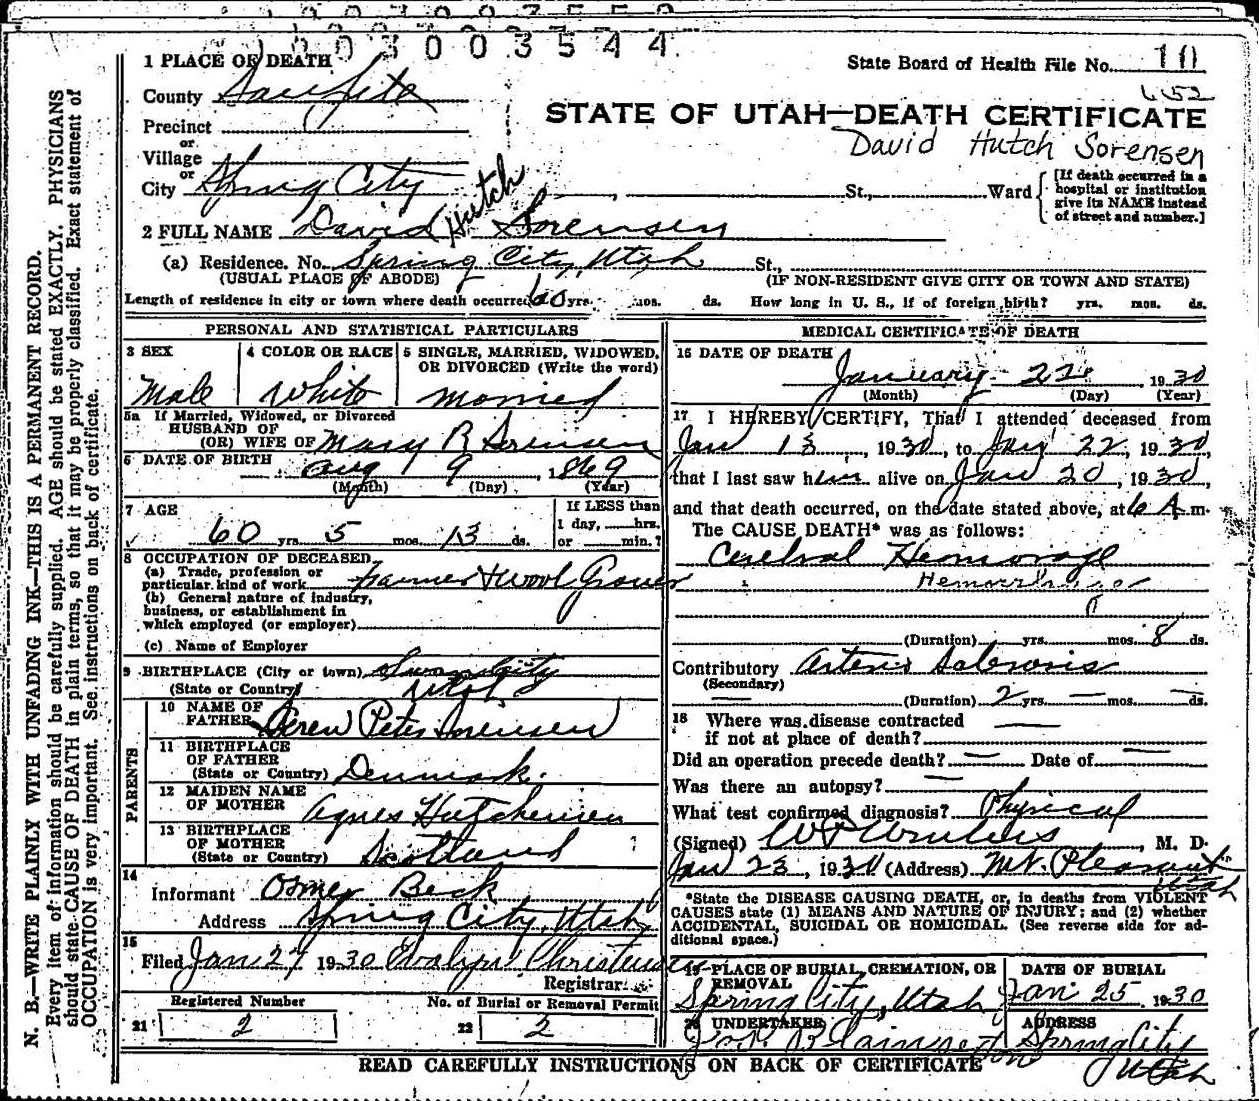 003003544
1 PLACE OF DEATH
State Board of Health File No. 10
652
County Sanpete
STATE OF UTAH—DEATH CERTIFICATE
Precinct
David Hutch Sorensen
or
Village
or
City Spring City St., Ward
[If death occurred in a hospital or institution give its NAME instead of street and number.]
2 FULL NAME David Hutch Sorensen
(a) Residence. No. Spring City, Utah St.,
(USUAL PLACE OF ABODE) (IF NON-RESIDENT GIVE CITY OR TOWN AND STATE)
Length of residence in city or town where death occurred 60 yrs. mos. ds. How long in U. S., if of foreign birth? yrs. mos. ds.
PERSONAL AND STATISTICAL PARTICULARS
3 SEX
Male
4 COLOR OR RACE
White
5 SINGLE, MARRIED, WIDOWED, OR DIVORCED (Write the word)
Married
5a If Married, Widowed, or Divorced
HUSBAND OF
(OR) WIFE OF Mary R Sorensen
6 DATE OF BIRTH Aug 9, 1869
(Month) (Day) (Year)
7 AGE
60 yrs. 5 mos. 13 ds.
If LESS than
1 day, hrs.
or min.?
8 OCCUPATION OF DECEASED
(a) Trade, profession or
particular kind of work Farmer & Wool Grower
(b) General nature of industry,
business, or establishment in
which employed (or employer)
(c) Name of Employer
9 BIRTHPLACE (City or town) Spring City
(State or Country) Utah
PARENTS
10 NAME OF
FATHER Soren Peter Sorensen
11 BIRTHPLACE
OF FATHER
(State or Country) Denmark.
12 MAIDEN NAME
OF MOTHER Agnes Hutchenson
13 BIRTHPLACE
OF MOTHER
(State or Country) Scotland
14
Informant Osmer Beck
Address Spring City, Utah
15
Filed Jan 27 1930 Evalyn Christensen
Registrar.
Registered Number
21 2
No. of Burial or Removal Permit
22 2
MEDICAL CERTIFICATE OF DEATH
16 DATE OF DEATH
January 22 1930
(Month) (Day) (Year)
17 I HEREBY CERTIFY, That I attended deceased from
Jan 13, 1930, to Jan 22, 1930,
that I last saw him alive on Jan 20, 1930,
and that death occurred, on the date stated above, at 6 A. m.
The CAUSE DEATH* was as follows:
Cerebral Hemorage
Hemorrhage
(Duration) yrs. mos. 8 ds.
Contributory Arterio Sclerosis
(Secondary)
(Duration) 2 yrs. — mos. — ds.
18 Where was disease contracted
if not at place of death? —
Did an operation precede death? — Date of —
Was there an autopsy? —
What test confirmed diagnosis? Physical
(Signed) M. D.
Jan 23, 1930 (Address) Mt. Pleasant
Utah
*State the DISEASE CAUSING DEATH, or, in deaths from VIOLENT
CAUSES state (1) MEANS AND NATURE OF INJURY; and (2) whether
ACCIDENTAL, SUICIDAL OR HOMICIDAL. (See reverse side for ad-
ditional space.)
19 PLACE OF BURIAL, CREMATION, OR
REMOVAL
Spring City, Utah
DATE OF BURIAL
Jan 25 1930
20 UNDERTAKER
ADDRESS
Spring City
Utah
READ CAREFULLY INSTRUCTIONS ON BACK OF CERTIFICATE
N. B.—WRITE PLAINLY WITH UNFADING INK—THIS IS A PERMANENT RECORD.
Every item of information should be carefully supplied. AGE should be stated EXACTLY. PHYSICIANS
should state CAUSE OF DEATH in plain terms, so that it may be properly classified. Exact statement of
OCCUPATION is very important. See instructions on back of certificate.